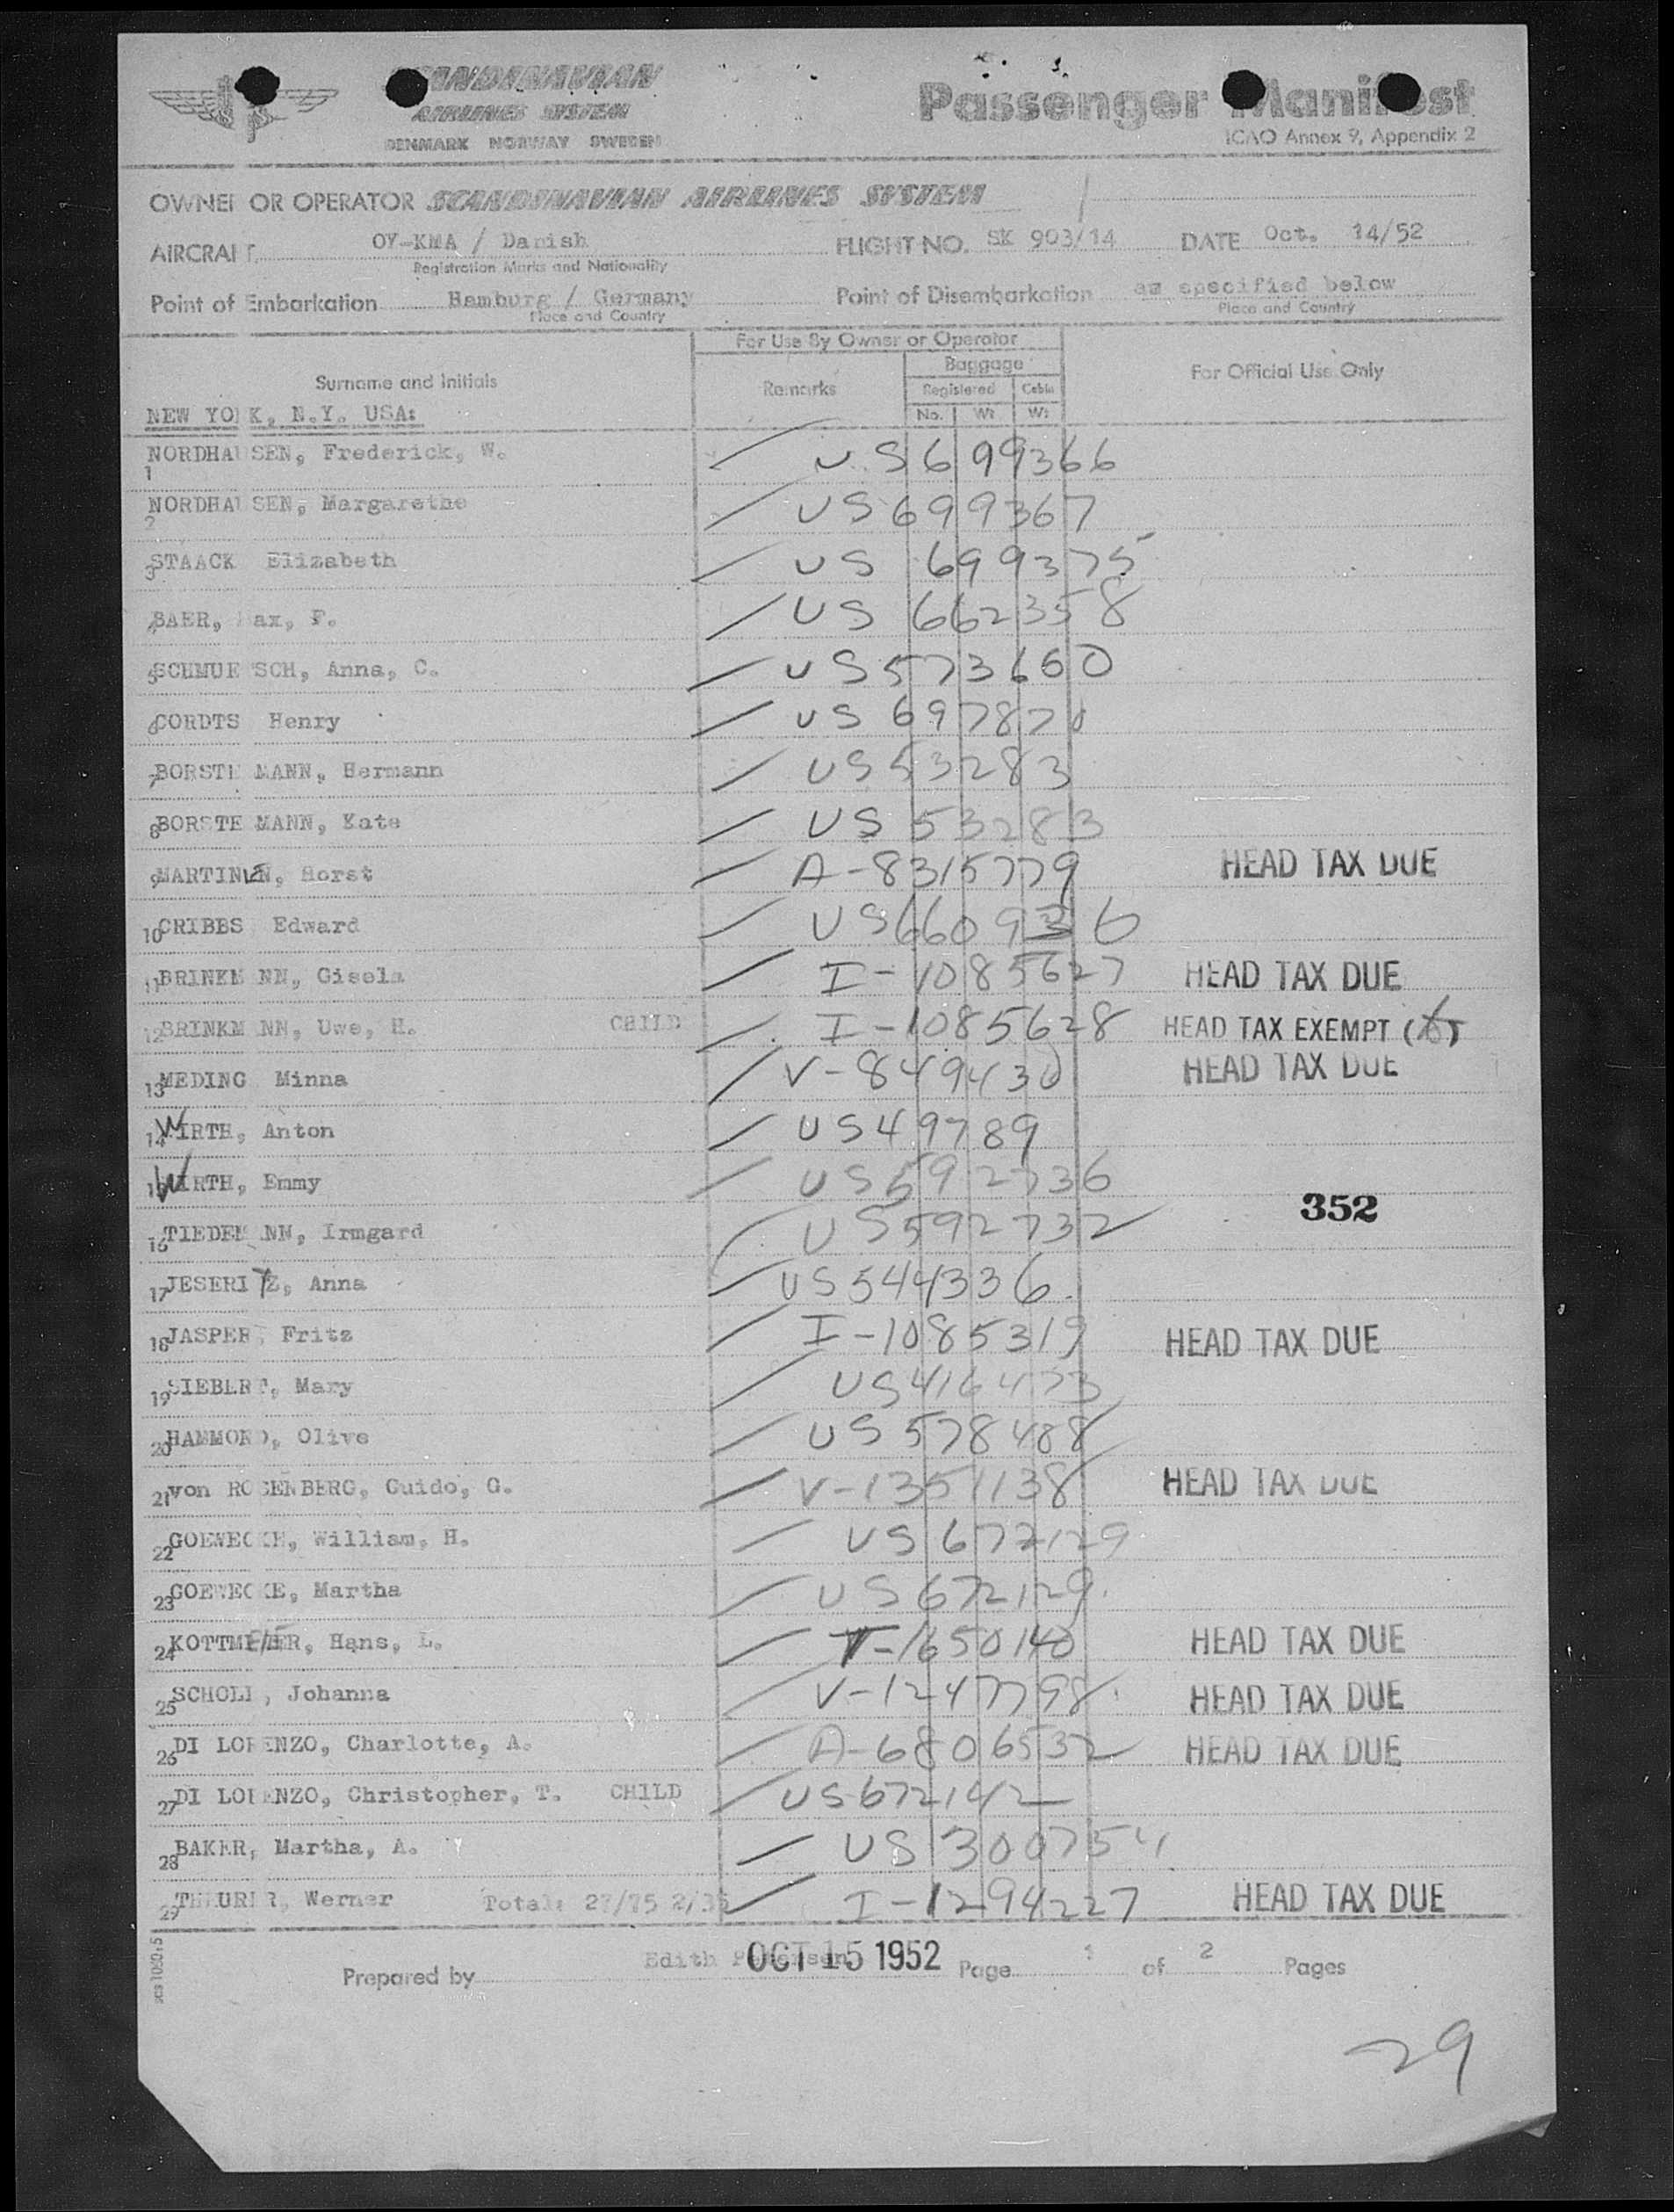 SCANDINAVIAN
AIRLINES SYSTEM
DENMARK NORWAY SWEDEN
Passenger Manifest
ICAO Annex 9, Appendix 2
OWNER OR OPERATOR SCANDINAVIAN AIRLINES SYSTEM
AIRCRAFT OY-KMA / Danish FLIGHT NO. SK 903/14 DATE Oct. 14/52
Registration Marks and Nationality
Point of Embarkation Hamburg / Germany Point of Disembarkation as specified below
Place and Country Place and Country
For Use By Owner or Operator
Baggage
Surname and Initials Remarks Registered Cabin For Official Use Only
NEW YORK, N.Y. USA: No. Wt Wt
1 NORDHAUSEN, Frederick, W. US 699366
2 NORDHAUSEN, Margarethe US 699367
3 STAACK Elizabeth US 699375
4 BAER, Max, F. US 662358
5 SCHMUETSCH, Anna, C. US 573660
6 CORDTS Henry US 697870
7 BORSTELMANN, Hermann US 53283
8 BORSTELMANN, Kate US 53283
9 MARTINEN, Horst A-8315779 HEAD TAX DUE
10 CRIBBS Edward US 660936
11 BRINKMANN, Gisela I-1085627 HEAD TAX DUE
12 BRINKMANN, Uwe, H. CHILD I-1085628 HEAD TAX EXEMPT
13 MEDING Minna V-849430 HEAD TAX DUE
14 WIRTH, Anton US 49789
15 WIRTH, Emmy US 592736
352
16 TIEDEMANN, Irmgard US 592732
17 JESERITZ, Anna US 544336
18 JASPER, Fritz I-1085319 HEAD TAX DUE
19 SIEBERT, Mary US 416473
20 HAMMOND, Olive US 578488
21 von ROSENBERG, Guido, G. V-1351138 HEAD TAX DUE
22 GOEWECKE, William, H. US 672129
23 GOEWECKE, Martha US 672129
24 KOTTMEIER, Hans, L. V-1650140 HEAD TAX DUE
25 SCHOLL, Johanna V-1247798 HEAD TAX DUE
26 DI LORENZO, Charlotte, A. A-6806532 HEAD TAX DUE
27 DI LORENZO, Christopher, T. CHILD US 672142
28 BAKER, Martha, A. US 300754
29 THEURER, Werner Total: 27/75 2/35 I-1294227 HEAD TAX DUE
Prepared by Edith Petersen OCT 15 1952 Page 1 of 2 Pages
29